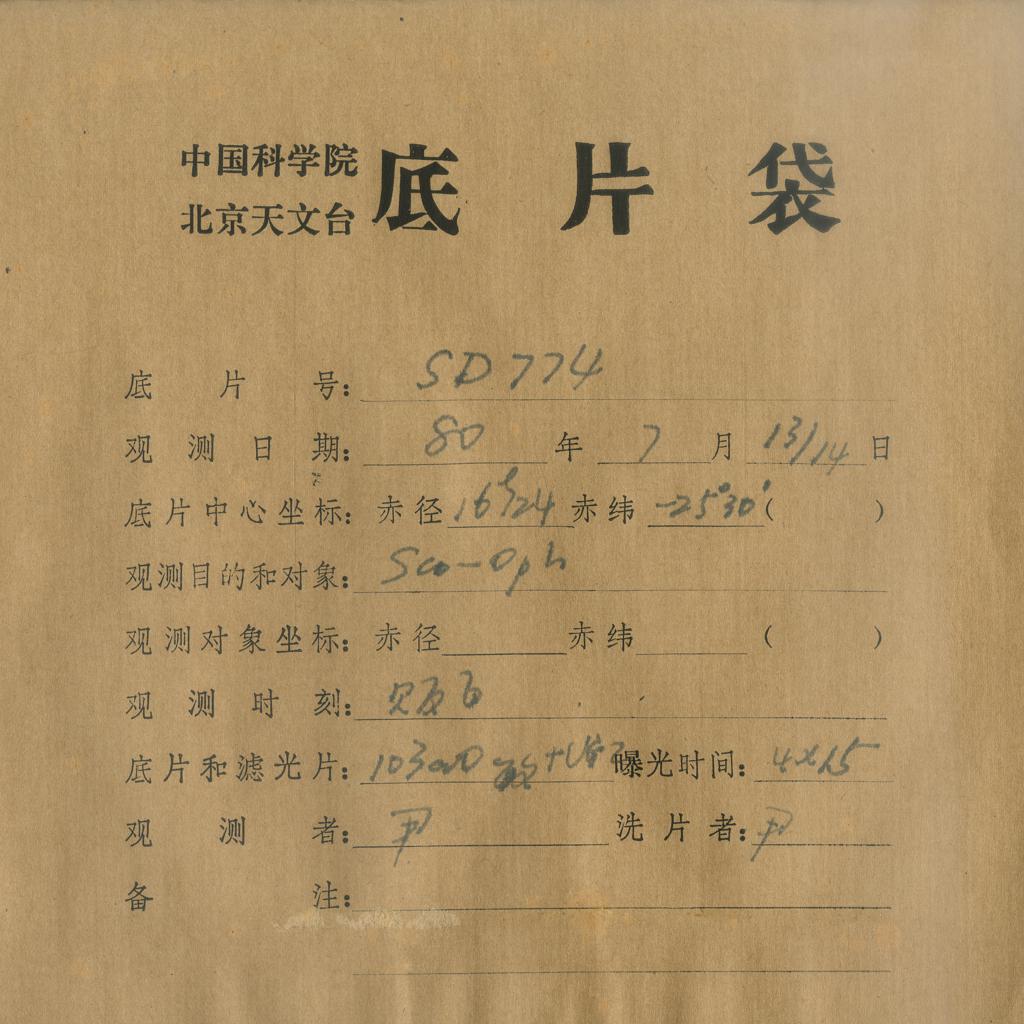 中国科学院
北京天文台 底片袋
底片号: SD774
观测日期: 80年7月13/14日
底片中心坐标: 赤径 16h24 赤纬 -25°30' ( )
观测目的和对象: Sco-Oph
观测对象坐标: 赤径 赤纬 ( )
观测时刻: 见反面
底片和滤光片: 103aO 曝光时间: 4×15
观测者: 尹 洗片者: 尹
备注: